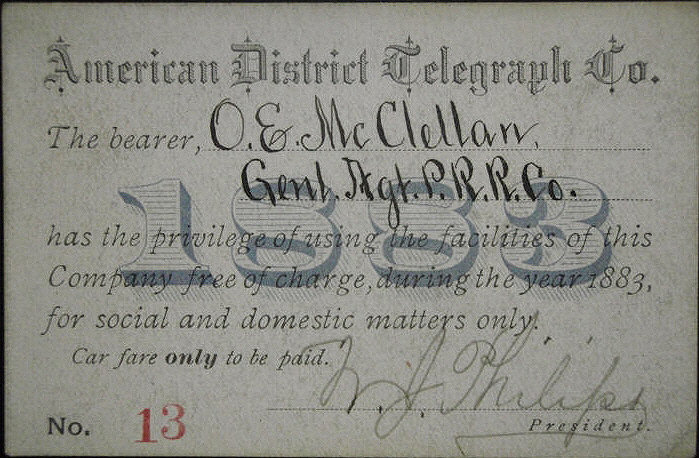 American District Telegraph Co.
The bearer, O. E. McClellan,
Genl. Agt. P. R. R. Co.
1883
has the privilege of using the facilities of this
Company free of charge, during the year 1883,
for social and domestic matters only.
Car fare only to be paid.
W. J. Philips
No. 13 President.